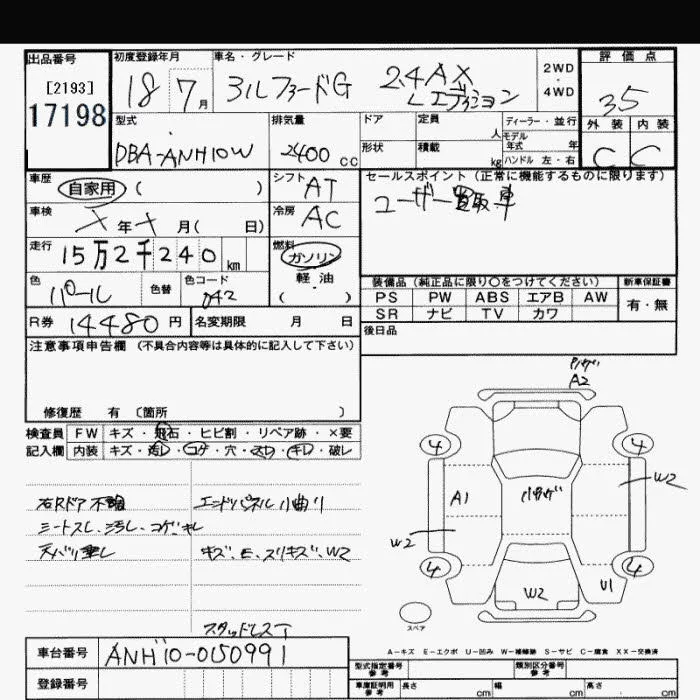 出品番号 初度登録年月 車名・グレード 評価点
[2193] 18 7月 アルファードG 2.4AX 2WD・4WD 3.5
17198 Lエディション
型式 排気量 ドア 定員 人 ディーラー・並行 外装 内装
DBA-ANH10W 2400cc 形状 積載 kg モデル年式 年 C C
ハンドル 左・右
車歴 自家用 ( ) シフト AT セールスポイント(正常に機能するものに限ります)
ユーザー買取車
車検 年 月( 日) 冷房 AC
走行 15万2千240km 燃料 ガソリン
軽・油
( )
色 パール 色替 色コード 042
装備品(純正品に限り○をつけてください) 新車保証書
PS PW ABS エアB AW 有・無
SR ナビ TV カワ
R券 14480円 名変期限 月 日 後日品
注意事項申告欄(不具合内容等は具体的に記入して下さい)
修復歴 有 〔箇所 〕
検査員 FW キズ・飛石・ヒビ割・リペア跡・×要
記入欄 内装 キズ・汚レ・コゲ・穴・スレ・キレ・破レ
右Rドア不調 エンドパネル小曲り
シートスレ、汚レ、コゲ、キレ
天バリ垂レ キズ、E、スリキズ、W2
スタッドレスT
A2
4 4
A1 W2
W2
4 4
W2 U1
スペア
A-キズ E-エクボ U-凹み W-補修跡 S-サビ C-腐食 XX-交換済
車台番号 ANH10-0150991
登録番号
型式指定番号 参考 類別区分番号 参考
車庫証明用 参考 長さ cm 幅 cm 高さ cm